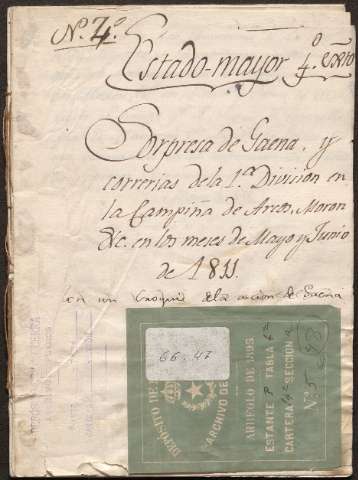 N.º 4.º
Estado-mayor 4.º exto
Sorpresa de Gaena, y
correrias de la 1.ª Division en
la Campiña de Arcos, Moron
&c. en los meses de Mayo y Junio
de 1811.
con un croquis de la accion de Gaena
66-47
DEPÓSITO DE
ARCHIVO DE
ARREGLO DE 1893.
ESTANTE P TABLA 6ª
CARTERA SECCIÓN
N.º 5